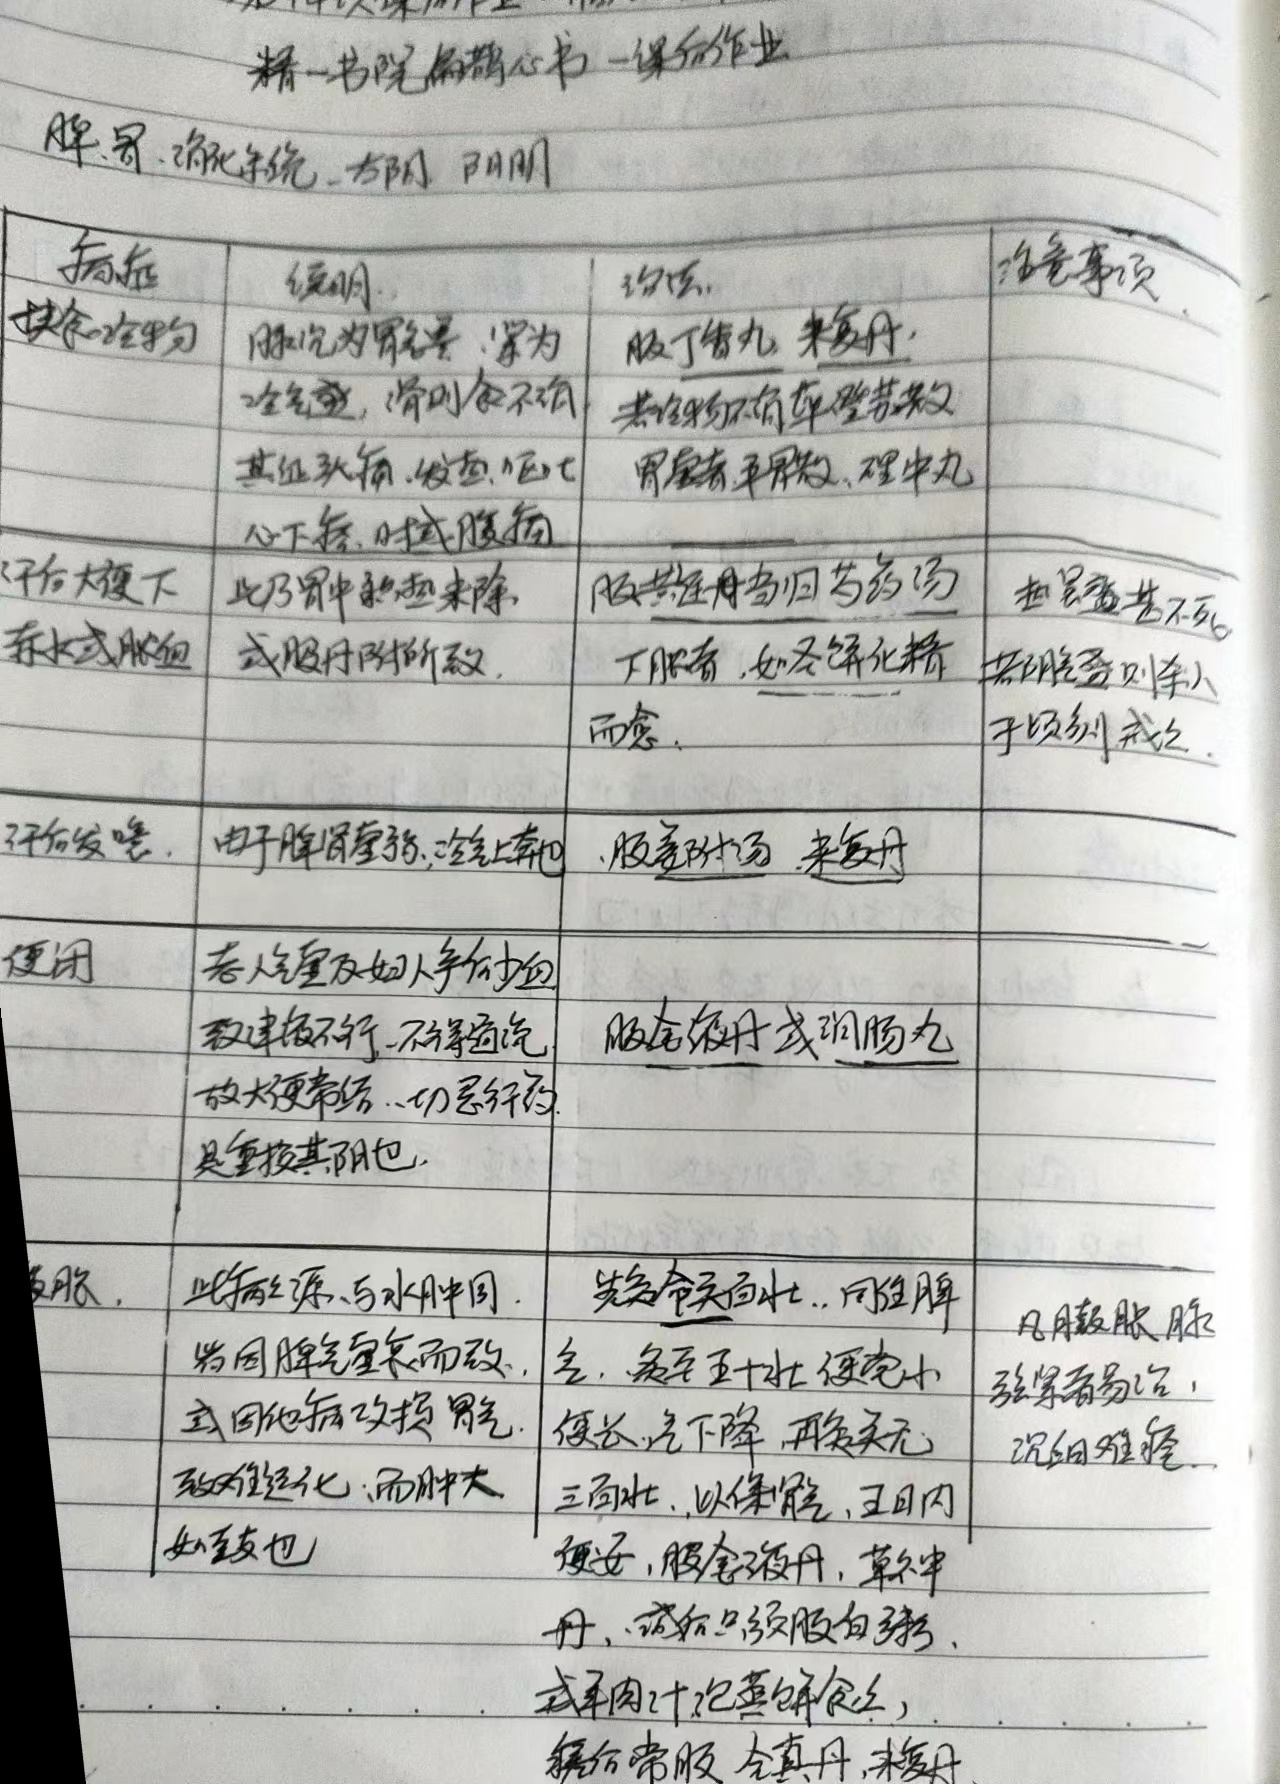 精一书院扁鹊心书一课后作业
脾.胃.消化系统_太阴 阳明
病症
说明.
治法.
注意事项
挟食冷物
脉沉为胃气寒,紧为
冷气盛,滑则食不消
其证头痛.发热.呕吐
心下痞.时或腹痛
服丁香丸 来复丹.
胃虚者.平胃散.理中丸
汗后大便下
赤水或脓血
此乃胃中积热未除.
或服丹附所致.
服黄连丹当归芍药汤
下脓者.如圣饼化积
而愈.
若阴气盛则杀人
于顷刻 戒之.
汗后发噫.
由于脾肾虚弱,冷气上奔也
.服姜附汤 来复丹
便闭
老人气虚及妇人产后少血
致津液不行,不得通流
故大便常结..切忌行药
是重
其阴也.
服金液丹或润肠丸
胀.
此病之源.与水肿同.
皆因脾气虚衰而致.
或因他病攻损胃气.
致难运化.而肿大
如鼓也
先灸命关百壮..固住脾
气.灸至五十壮便觉小
便长.气下降.再灸关元
三百壮.以保肾气.五日内
便安.服金液丹.草神
丹.药后只须服白粥.
或羊肉汁泡蒸饼食之,
瘥后常服 全真丹.来复丹
凡臌胀 脉
弦紧者易治.
沉细难痊.